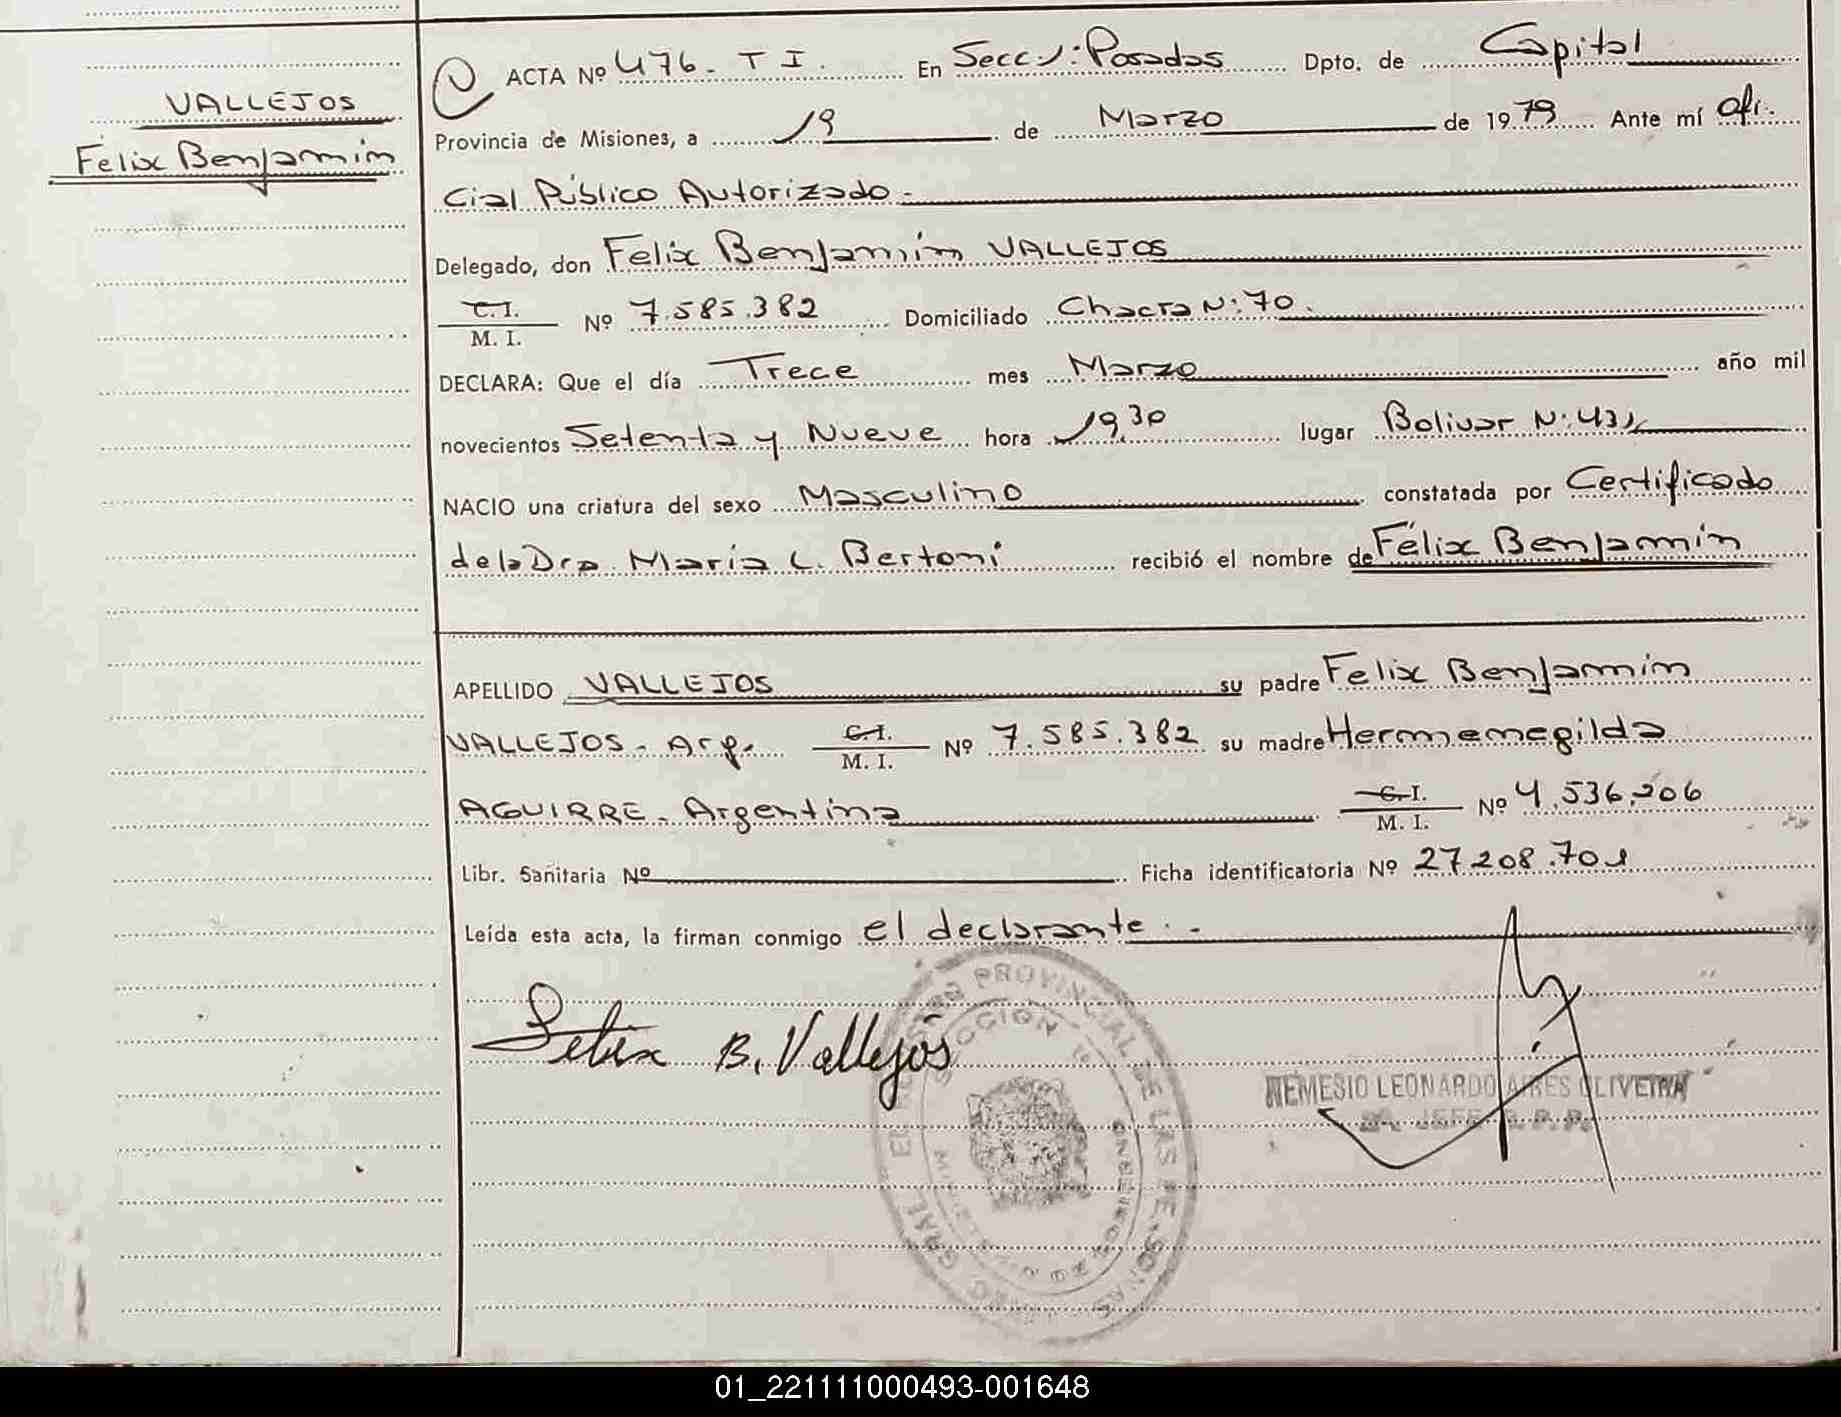 VALLEJOS
Félix Benjamín
ACTA Nº 476 - T I. En Secc. 1: Posadas Dpto. de Capital
Provincia de Misiones, a 19 de Marzo de 1979 Ante mí ofi-
cial Público Autorizado -
Delegado, don Felix Benjamín VALLEJOS
C. I.
M. I.
Nº 7.585.382 Domiciliado Chacra N: 70.
DECLARA: Que el día Trece mes Marzo año mil
novecientos Setenta y Nueve hora 19,30 lugar Bolivar N: 431
NACIO una criatura del sexo Masculino constatada por Certificado
de la Dra. María L. Bertoni recibió el nombre de Félix Benjamín
APELLIDO VALLEJOS su padre Felix Benjamín
VALLEJOS - Arg. C. I. M. I. Nº 7.585.382 su madre Hermenegilda
AGUIRRE - Argentina C. I. M. I. Nº 4.536.206
Libr. Sanitaria Nº Ficha identificatoria Nº 27.208.701
Leída esta acta, la firman conmigo el declarante. -
Felix B. Vallejos
REGISTRO PROVINCIAL DE LAS PERSONAS
SECCION 1º
NEMESIO LEONARDO AIRES OLIVEIRA
2º JEFE R.P.P.
01_221111000493-001648